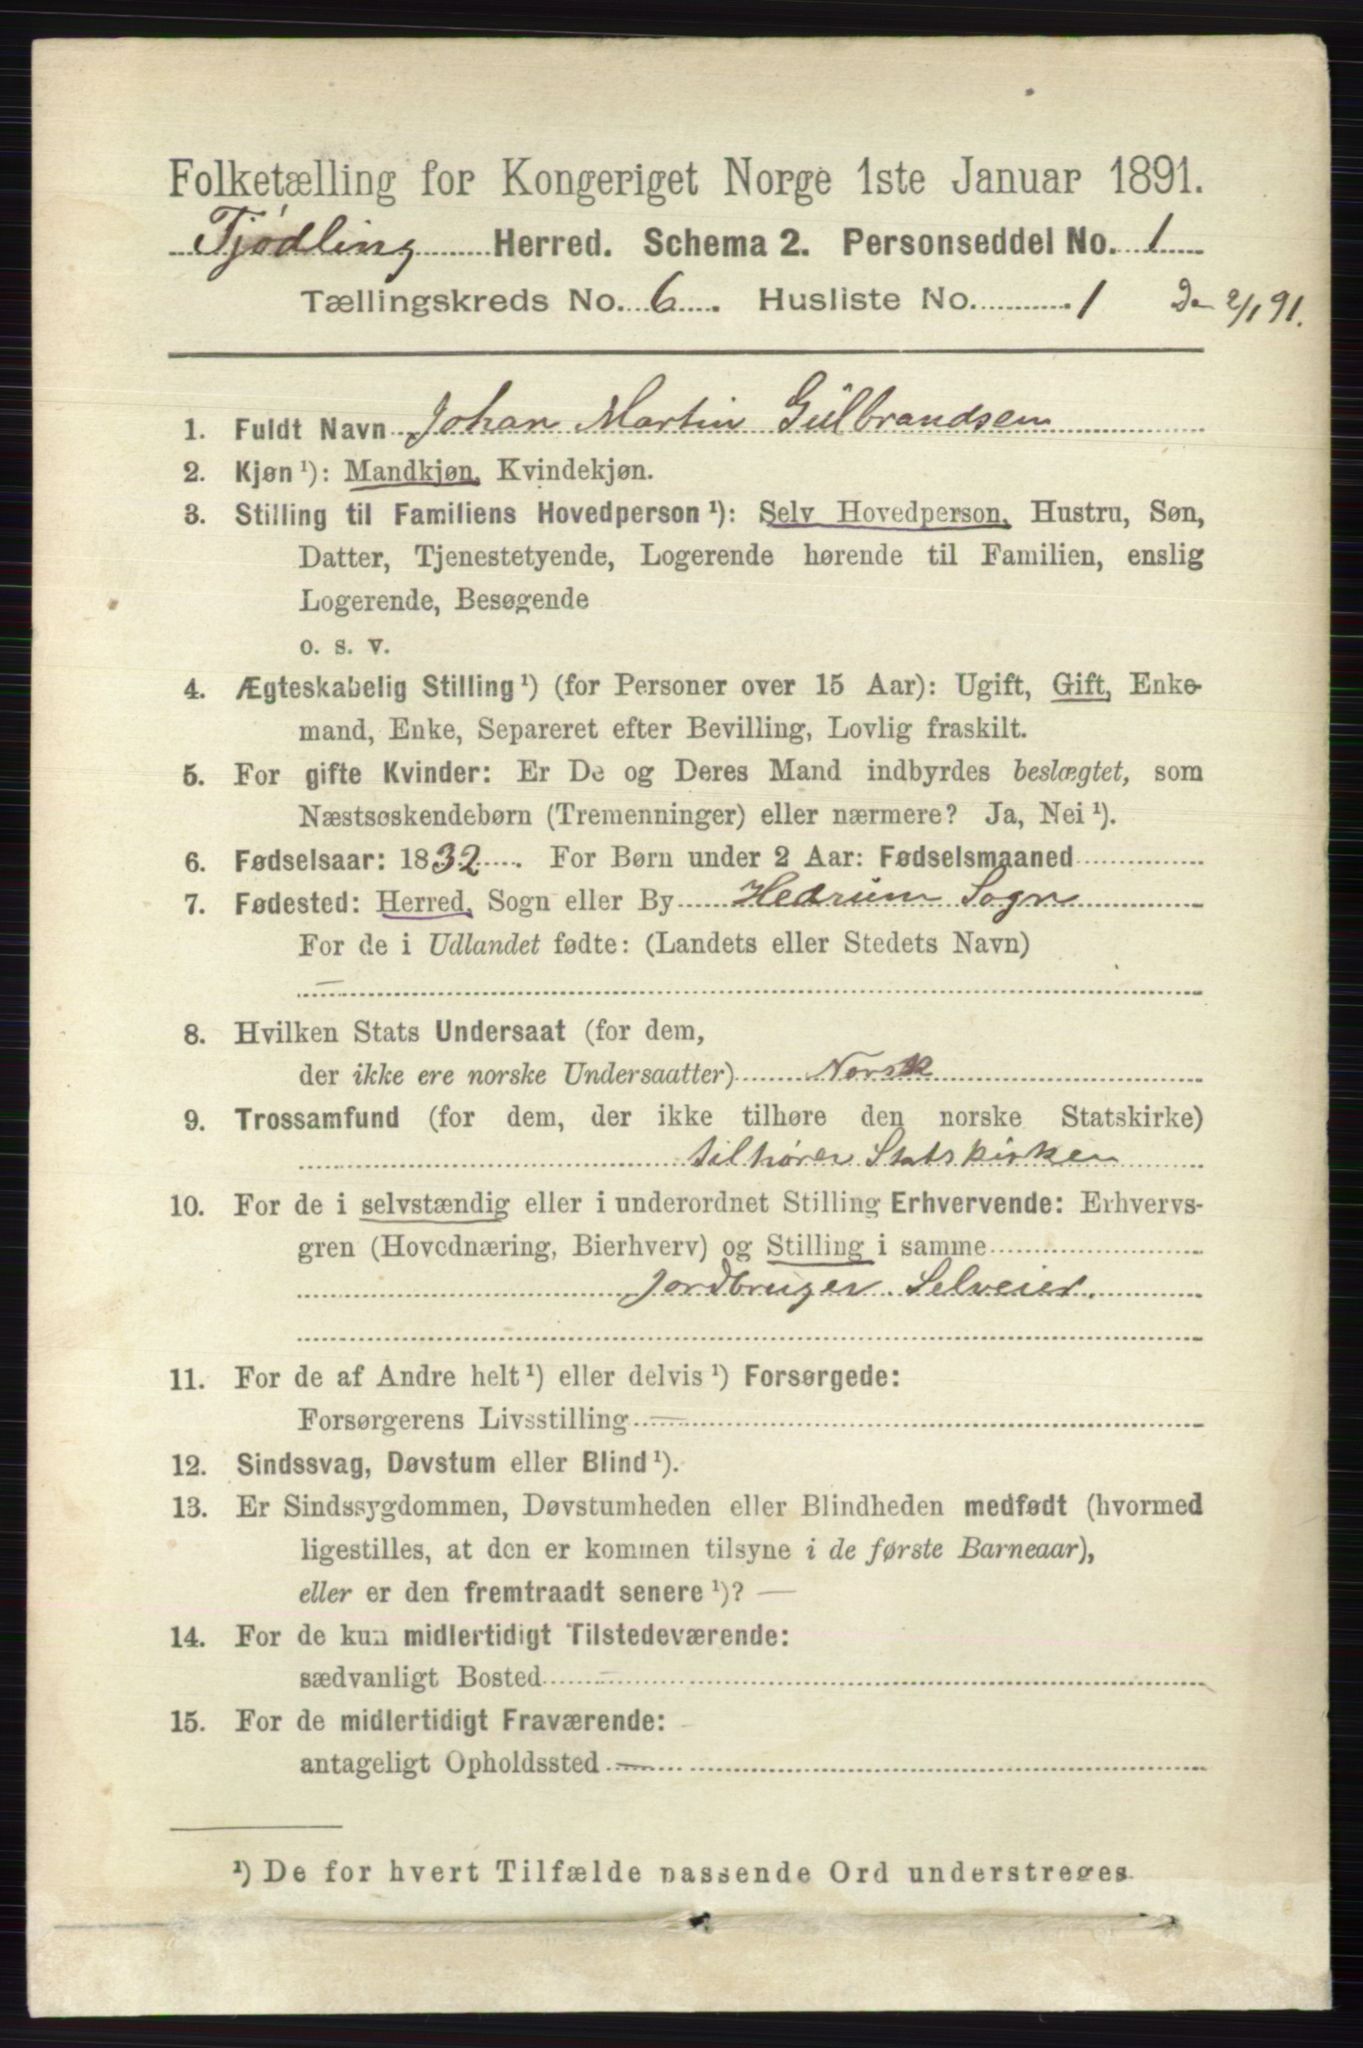 Folketælling for Kongeriget Norge 1ste Januar 1891.
Tjødling Herred. Schema 2. Personseddel No. 1
Tællingskreds No. 6. Husliste No. 1 Den 2/1 91.
1. Fuldt Navn Johan Martin Gulbrandsen
2. Kjøn ¹): Mandkjøn, Kvindekjøn.
3. Stilling til Familiens Hovedperson ¹): Selv Hovedperson, Hustru, Søn,
Datter, Tjenestetyende, Logerende hørende til Familien, enslig
Logerende, Besøgende
o. s. v.
4. Ægteskabelig Stilling ¹) (for Personer over 15 Aar): Ugift, Gift, Enke-
mand, Enke, Separeret efter Bevilling, Lovlig fraskilt.
5. For gifte Kvinder: Er De og Deres Mand indbyrdes beslægtet, som
Næstsøskendebørn (Tremenninger) eller nærmere? Ja, Nei ¹).
6. Fødselsaar: 1832. For Børn under 2 Aar: Fødselsmaaned
7. Fødested: Herred, Sogn eller By Hedrum Sogn
For de i Udlandet fødte: (Landets eller Stedets Navn)
—
8. Hvilken Stats Undersaat (for dem,
der ikke ere norske Undersaatter) Norsk
9. Trossamfund (for dem, der ikke tilhøre den norske Statskirke)
tilhører Statskirken
10. For de i selvstændig eller i underordnet Stilling Erhvervende: Erhvervs-
gren (Hovednæring, Bierhverv) og Stilling i samme
Jordbruger Selveier.
11. For de af Andre helt ¹) eller delvis ¹) Forsørgede:
Forsørgerens Livsstilling —
12. Sindssvag, Døvstum eller Blind ¹).
13. Er Sindssygdommen, Døvstumheden eller Blindheden medfødt (hvormed
ligestilles, at den er kommen tilsyne i de første Barneaar),
eller er den fremtraadt senere ¹)? —
14. For de kun midlertidigt Tilstedeværende:
sædvanligt Bosted —
15. For de midlertidigt Fraværende:
antageligt Opholdssted —
¹) De for hvert Tilfælde passende Ord understreges.